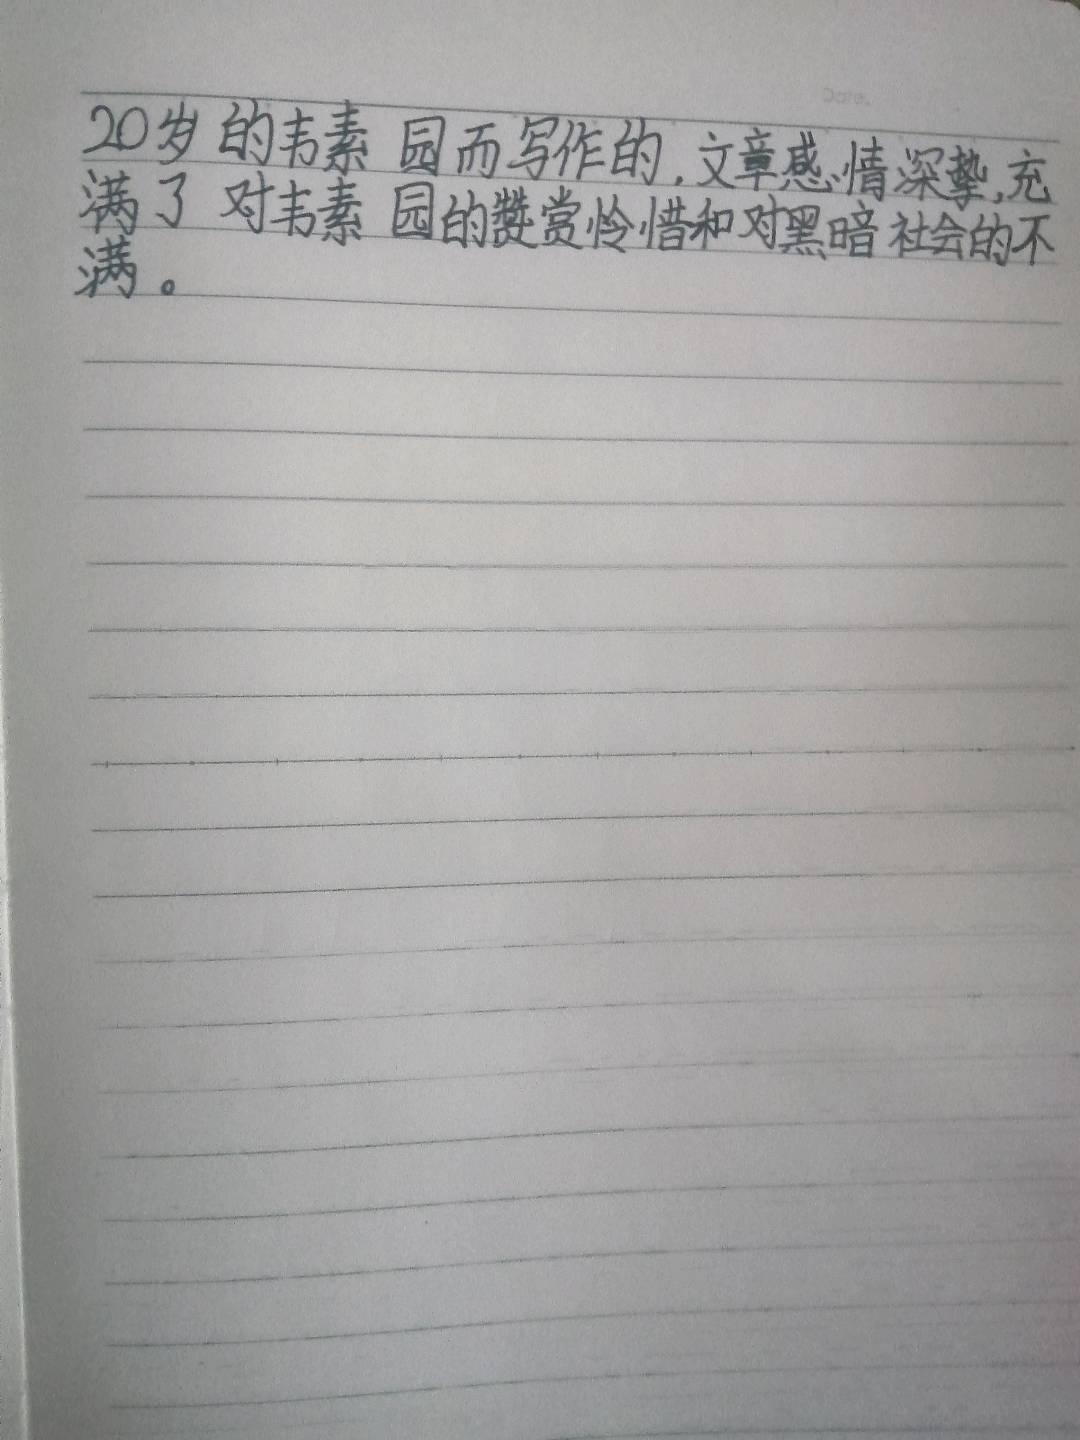 Date.
20岁的韦素园而写作的,文章感情深挚,充
满了对韦素园的赞赏怜惜和对黑暗社会的不
满。